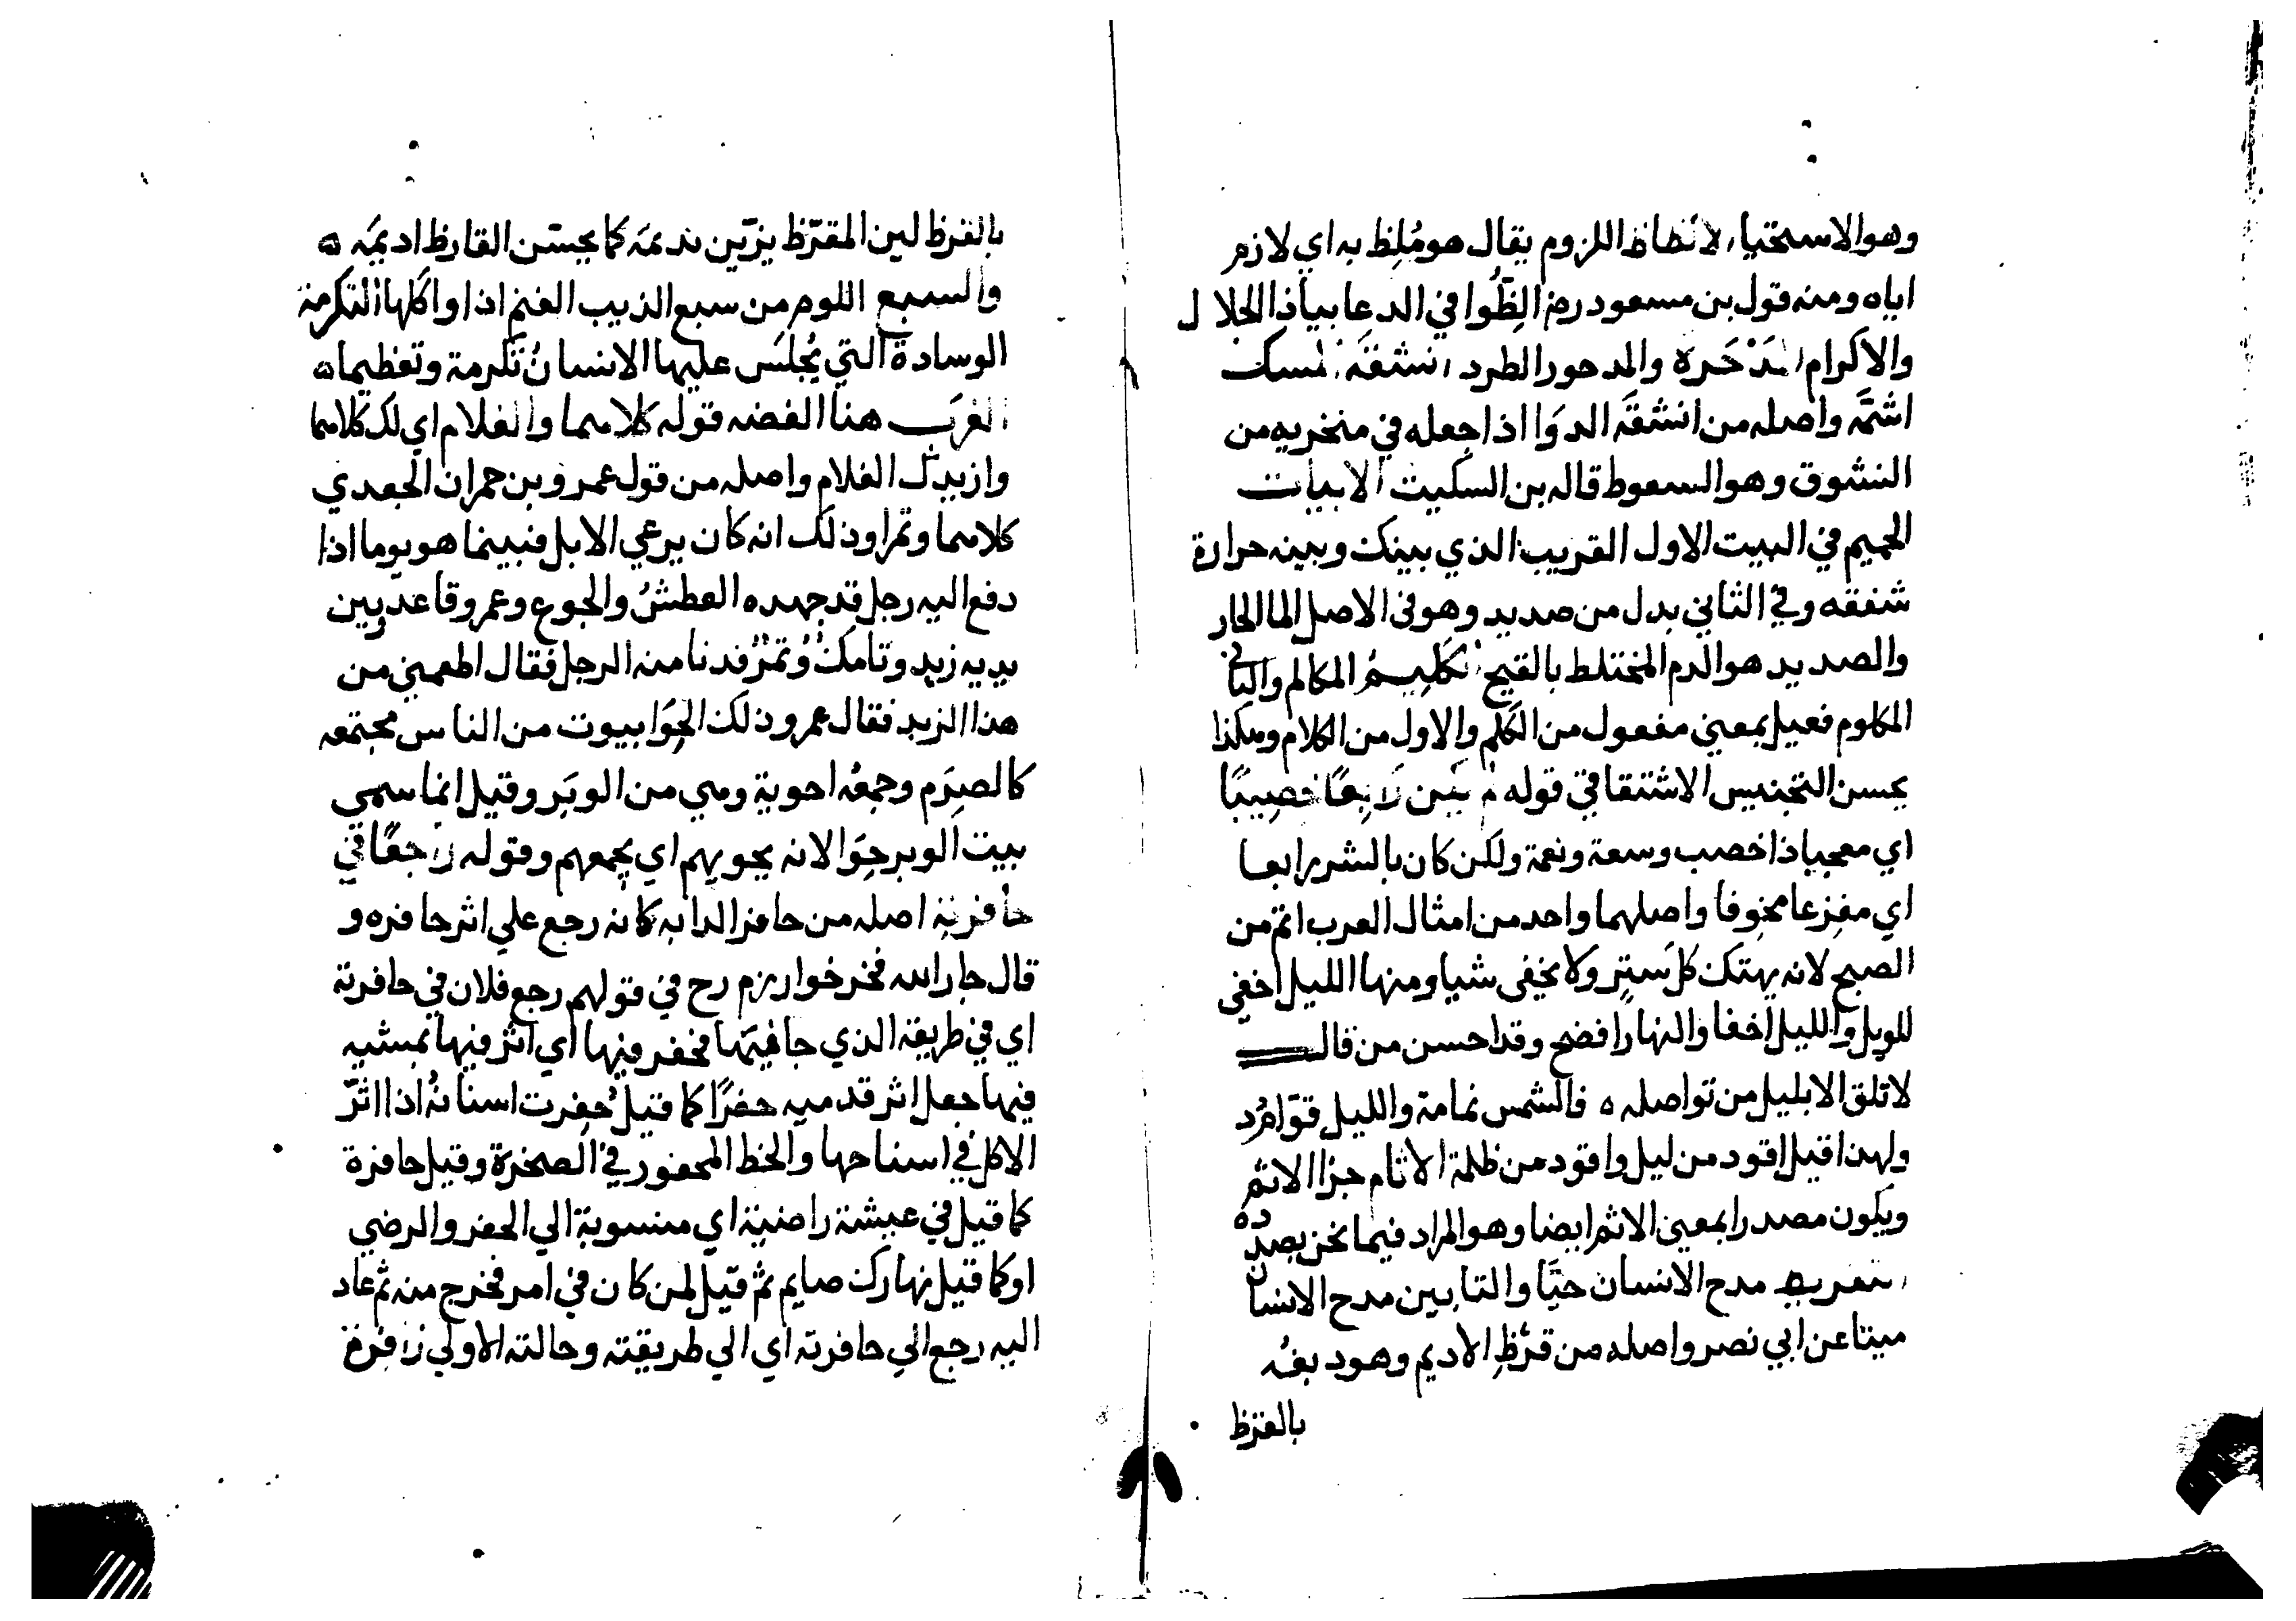 وهوالاستحياء الانظاظ اللزوم يقال هو مُلِظ به اي لازم
اياه ومنه قول بن مسعود رضـ الِظُّوا في الدعا بياذا الجلال
والاكرام المَدْحَرة والمدحور الطرد انشقَه المسك
اشمَّه واصله من انشقَه الدوَا اذا جعله في منخريه من
النشوق وهو السعوط قاله بن السكيت الابيات
الحميم في البيت الاول القريب الذي بينك وبينه حرارة
شفقه وفي الثاني بدل من صديد وهو في الاصل الما الحار
والصديد هو الدم المختلط بالقيح الكليم المكالم والثاني
المكلوم فعيل بمعني مفعول من الكلْم والاول من الكلام وهكذا
يحسن التجنيس الاشتقاقي قوله رايعًا خصيبًا
اي معجبا ذا خصب وسعة ونعمة ولكن كان بالشر رايعا
اي مفزعا مخوفا واصلهما واحد من امثال العرب انم من
الصبح لانه يهتك كل سَترٍ ولا يخفي شيا ومنها الليل اخفي
للويل والليل اخفا والنهار افضح وقد احسن من قال
لا تلق الا بليل من تواصله ه فالشمس نمامة والليل قوّاد
ولهذا قيل اقود من ليل واقود من ظلمة الاثام جزا الاثم
ويكون مصدرا بمعني الاثم ايضا وهو المراد فيما نحن بصدده
التقريظ مدح الانسان حيًّا والتابين مدح الانسان
ميتا عن ابي نصر واصله من قرَّظ الاديم وهو دبغُه
بالقرظ
بالقرظ لين المقرّظ يزيّن نديمَه كما يحسّن القارظ اديمَه ه
والسبع اللوم من سبع الذيب الغنم اذا واكلها التكرمة
الوسادة التي يُجلَس عليها الانسانُ تكرمة وتعظيما ه
الغرَب هنا الفضه قوله كلاهما والغلام اي لك كلاهما
وازيدك الغلام واصله من قول عمرو بن حمران الجعدي
كلاهما وتمرا وذلك انه كان يرعي الابل فبينما هو يوما اذا
دفع اليه رجل قد جهده العطشُ والجوع وعمرو قاعد وبين
يديه زبد وتامكٌ وتمرٌ فدنا منه الرجل فقال اطعمني من
هذا الزبد فقال عمرو ذلك الجِوَا بيوت من الناس مجتمعه
كالصِرَم وجمعُه احوية وهي من الوبَر وقيل انما سمي
بيت الوبر حِوَا لانه يحويهم اي يجمعهم وقوله راجعًا في
حافرته اصله من حافر الدابه كانه رجع علي اثر حافره و
قال جار الله فخر خوارزم رح في قولهم رجع فلان في حافرته
اي في طريقه الذي جا فيَها فحفر فيها اي اثر فيها بمشيه
فيها جعل اثر قدميه حفرًا كما قيل حُفِرت اسنانُه اذا اثّر
الاكل في اسناخها والخط المحفور في الصخرة وقيل حافرة
كما قيل في عيشة راضية اي منسوبة الي الحفر والرضي
اوكما قيل نهارك صايم ثم قيل لمن كان في امر فخرج منه ثم عاد
اليه رجع الي حافرته اي الي طريقته وحالته الاولي زافرة